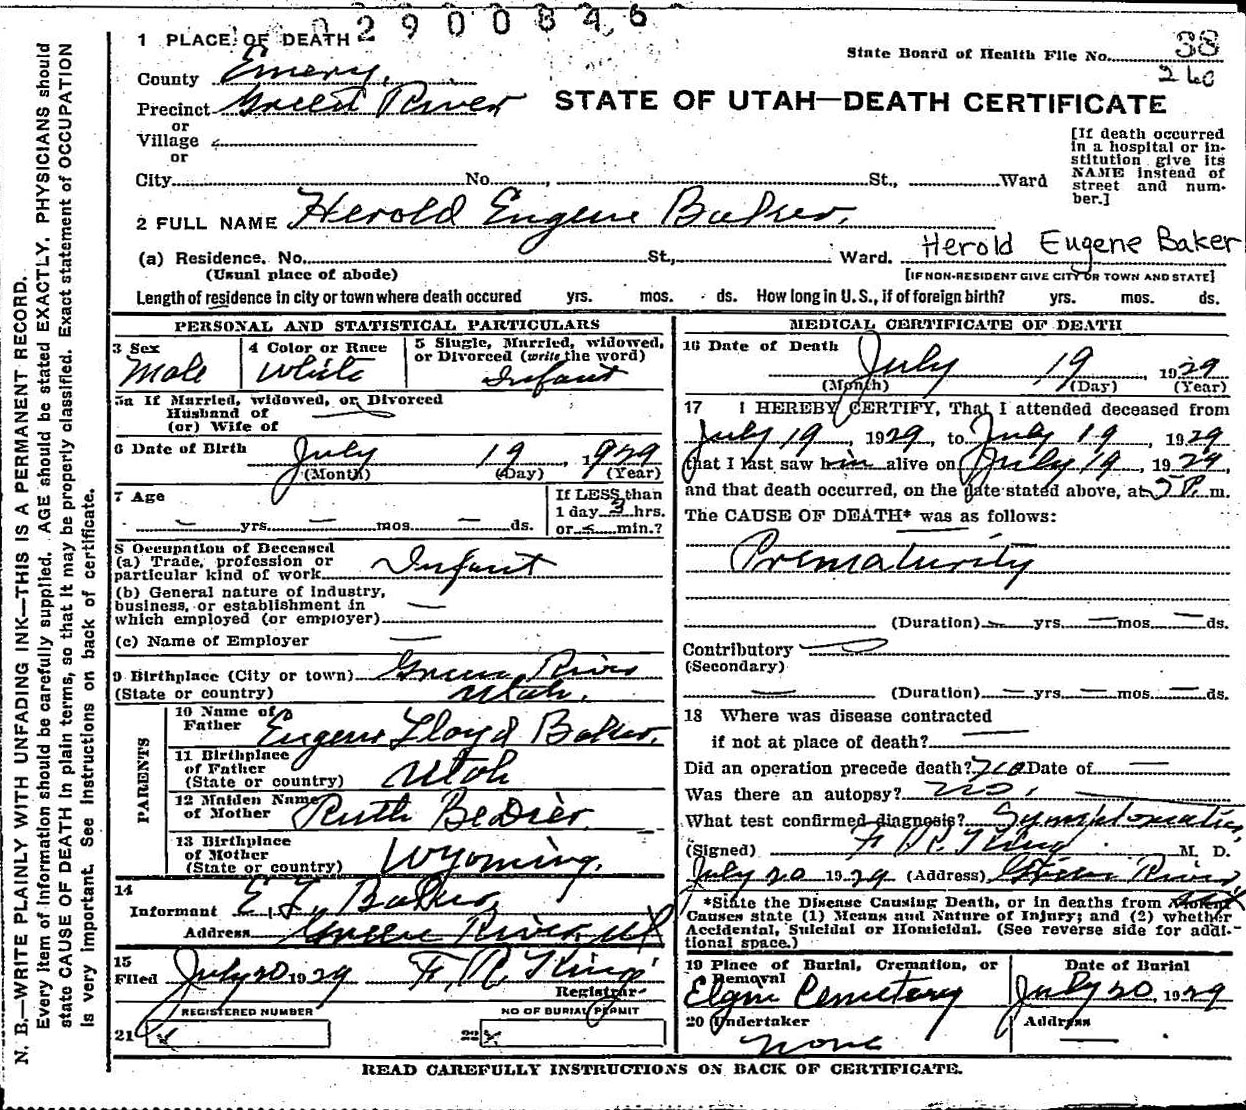 2900846
1 PLACE OF DEATH
State Board of Health File No. 38
260
County Emery,
Precinct Green River
STATE OF UTAH—DEATH CERTIFICATE
or
Village
or
[If death occurred in a hospital or institution give its NAME instead of street and number.]
City No. , St., Ward
2 FULL NAME Herold Eugene Baker.
Herold Eugene Baker
(a) Residence. No. St., Ward.
(Usual place of abode)
[IF NON-RESIDENT GIVE CITY OR TOWN AND STATE]
Length of residence in city or town where death occured yrs. mos. ds. How long in U. S., if of foreign birth? yrs. mos. ds.
PERSONAL AND STATISTICAL PARTICULARS
3 Sex
Male
4 Color or Race
White
5 Single, Married, widowed,
or Divorced (write the word)
Infant
5a If Married, widowed, or Divorced
Husband of
(or) Wife of
6 Date of Birth July 19, 1929
(Month) (Day) (Year)
7 Age
— yrs. — mos. — ds.
If LESS than
1 day 3 hrs.
or — min.?
8 Occupation of Deceased
(a) Trade, profession or
particular kind of work Infant
(b) General nature of Industry,
business, or establishment in
which employed (or employer) —
(c) Name of Employer —
9 Birthplace (City or town) Green River
(State or country) Utah.
PARENTS
10 Name of
Father Eugene Lloyd Baker.
11 Birthplace
of Father
(State or country) Utah
12 Maiden Name
of Mother Ruth Bedier.
13 Birthplace
of Mother
(State or country) Wyoming.
14
Informant E. L. Baker
Address Green River, Ut
15
Filed July 20 1929 F. R. King
Registrar
REGISTERED NUMBER
21 x
NO OF BURIAL PERMIT
22 x
MEDICAL CERTIFICATE OF DEATH
16 Date of Death July 19, 1929
(Month) (Day) (Year)
17 I HEREBY CERTIFY, That I attended deceased from
July 19, 1929, to July 19, 1929
that I last saw him alive on July 19, 1929,
and that death occurred, on the date stated above, at 5 P. m.
The CAUSE OF DEATH* was as follows:
Prematurity
(Duration) — yrs. — mos. — ds.
Contributory
(Secondary)
— (Duration) — yrs. — mos. — ds.
18 Where was disease contracted
if not at place of death? —
Did an operation precede death? No Date of —
Was there an autopsy? No.
What test confirmed diagnosis? Symptomatic
(Signed) F. R. King M. D.
July 20 1929 (Address) Green River, Utah
*State the Disease Causing Death, or in deaths from Violent
Causes state (1) Means and Nature of Injury; and (2) whether
Accidental, Suicidal or Homicidal. (See reverse side for addi-
tional space.)
19 Place of Burial, Cremation, or
Removal
Elgin Cemetery
Date of Burial
July 20, 1929
20 Undertaker
none
Address
—
READ CAREFULLY INSTRUCTIONS ON BACK OF CERTIFICATE.
N. B.—WRITE PLAINLY WITH UNFADING INK—THIS IS A PERMANENT RECORD.
Every item of information should be carefully supplied. AGE should be stated EXACTLY. PHYSICIANS should
state CAUSE OF DEATH in plain terms, so that it may be properly classified. Exact statement of OCCUPATION
is very important. See instructions on back of certificate.